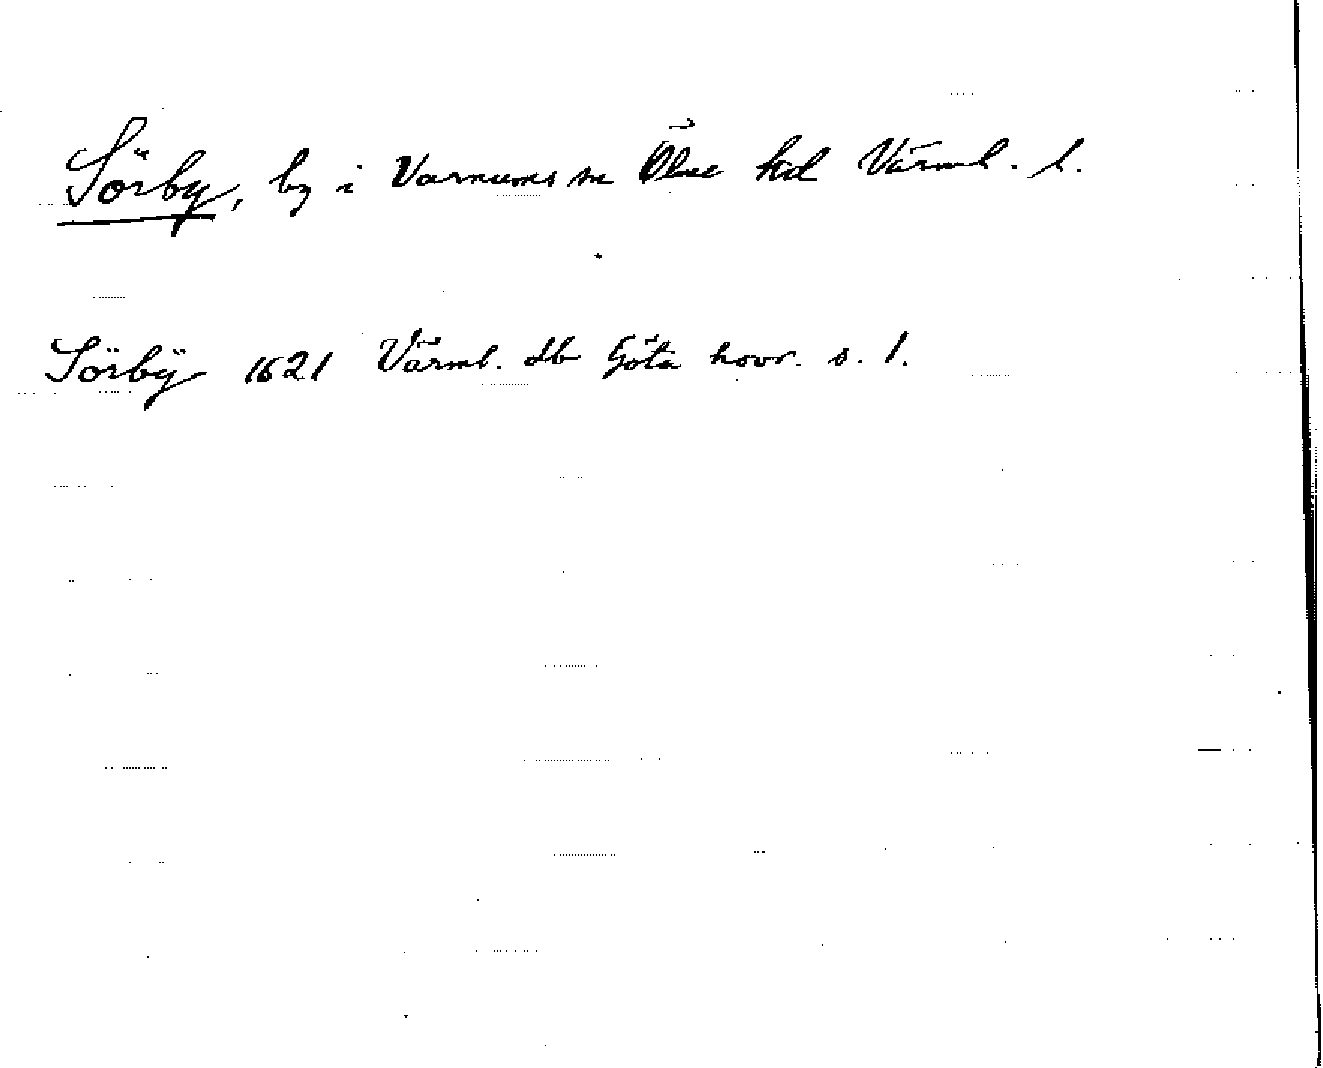 Sörby, by i Varnums sn Ölme hd Värml. l.
Sörbÿ 1621 Värml. db Göta hovr. s. 1.